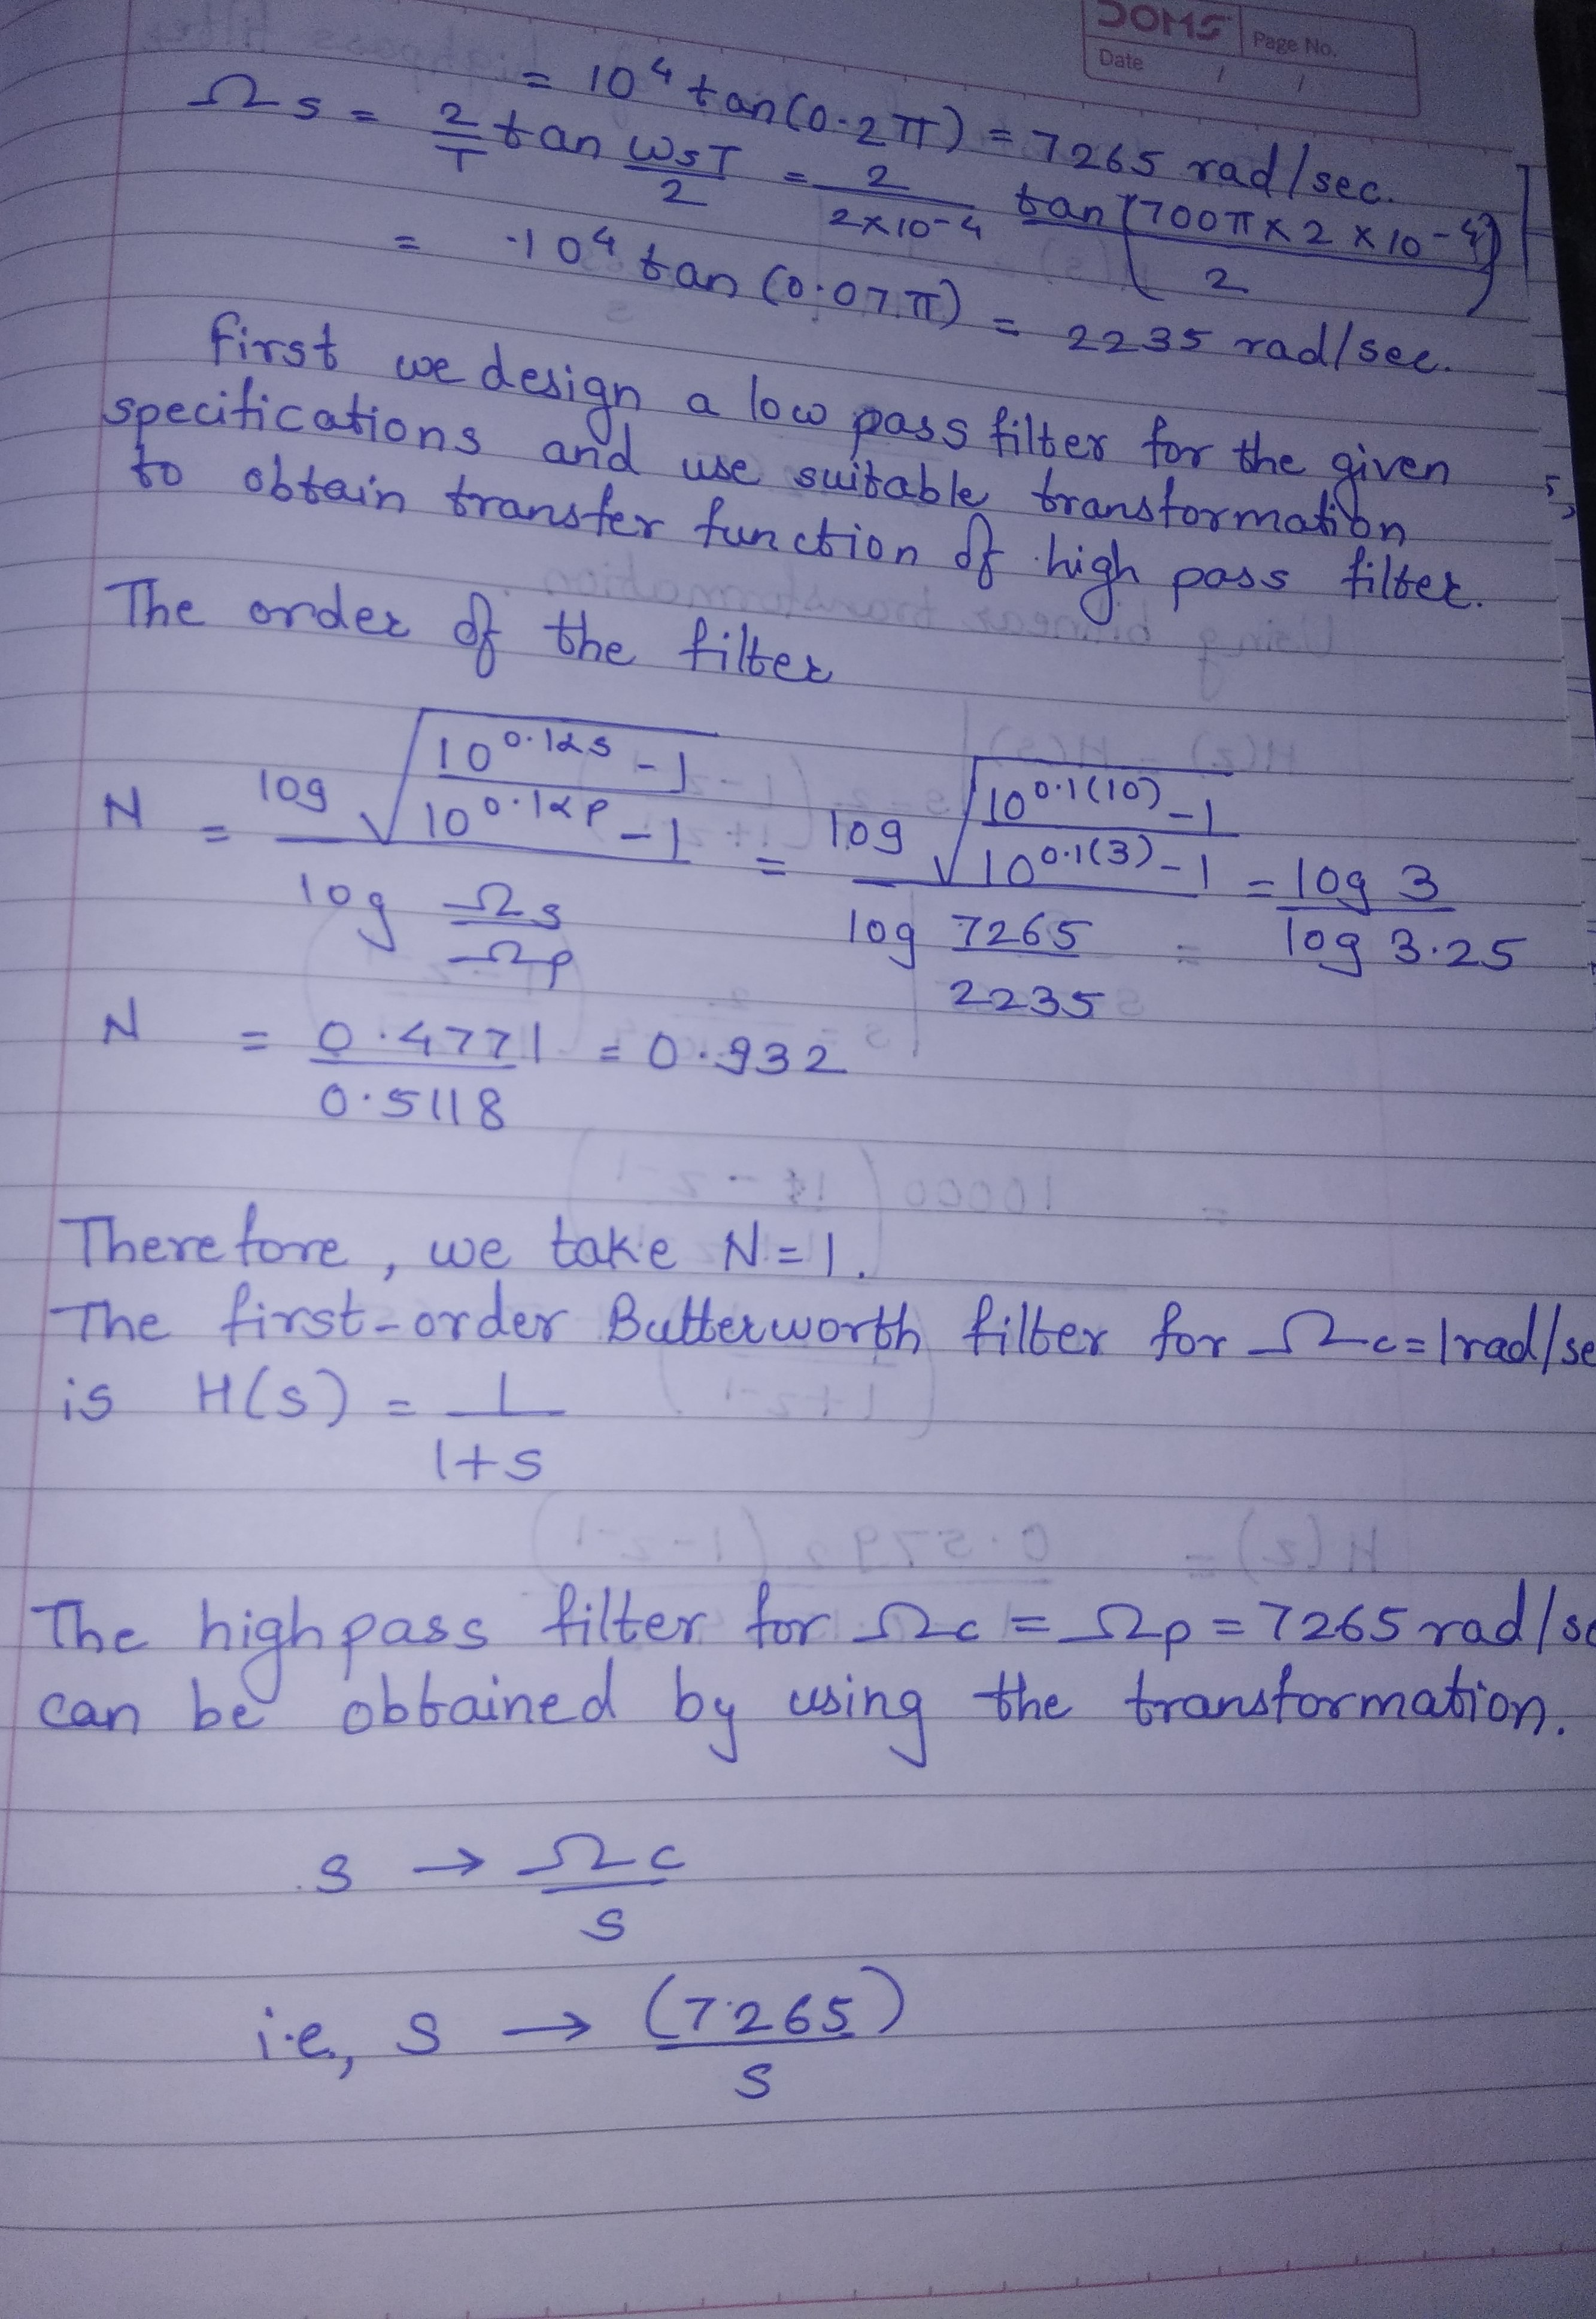 DOMS
Page No.
Date / /
= 10⁴ tan(0.2π) = 7265 rad/sec.
Ωs = 2/T tan ωsT/2 = 2/(2×10⁻⁴) tan(700π × 2 × 10⁻⁴/2)
= 10⁴ tan (0.07π) = 2235 rad/sec.
first we design a low pass filter for the given
specifications and use suitable transformation
to obtain transfer function of high pass filter.
The order of the filter
N = log √((10^0.1αs - 1)/(10^0.1αp - 1)) / log (Ωs/Ωp) = log √((10^0.1(10) - 1)/(10^0.1(3) - 1)) / log (7265/2235) = log 3 / log 3.25
N = 0.4771/0.5118 = 0.932
Therefore, we take N=1.
The first-order Butterworth filter for Ωc=1rad/se
is H(s) = 1/(1+s)
The highpass filter for Ωc = Ωp = 7265 rad/se
can be obtained by using the transformation.
s → Ωc/s
i.e, s → (7265)/s